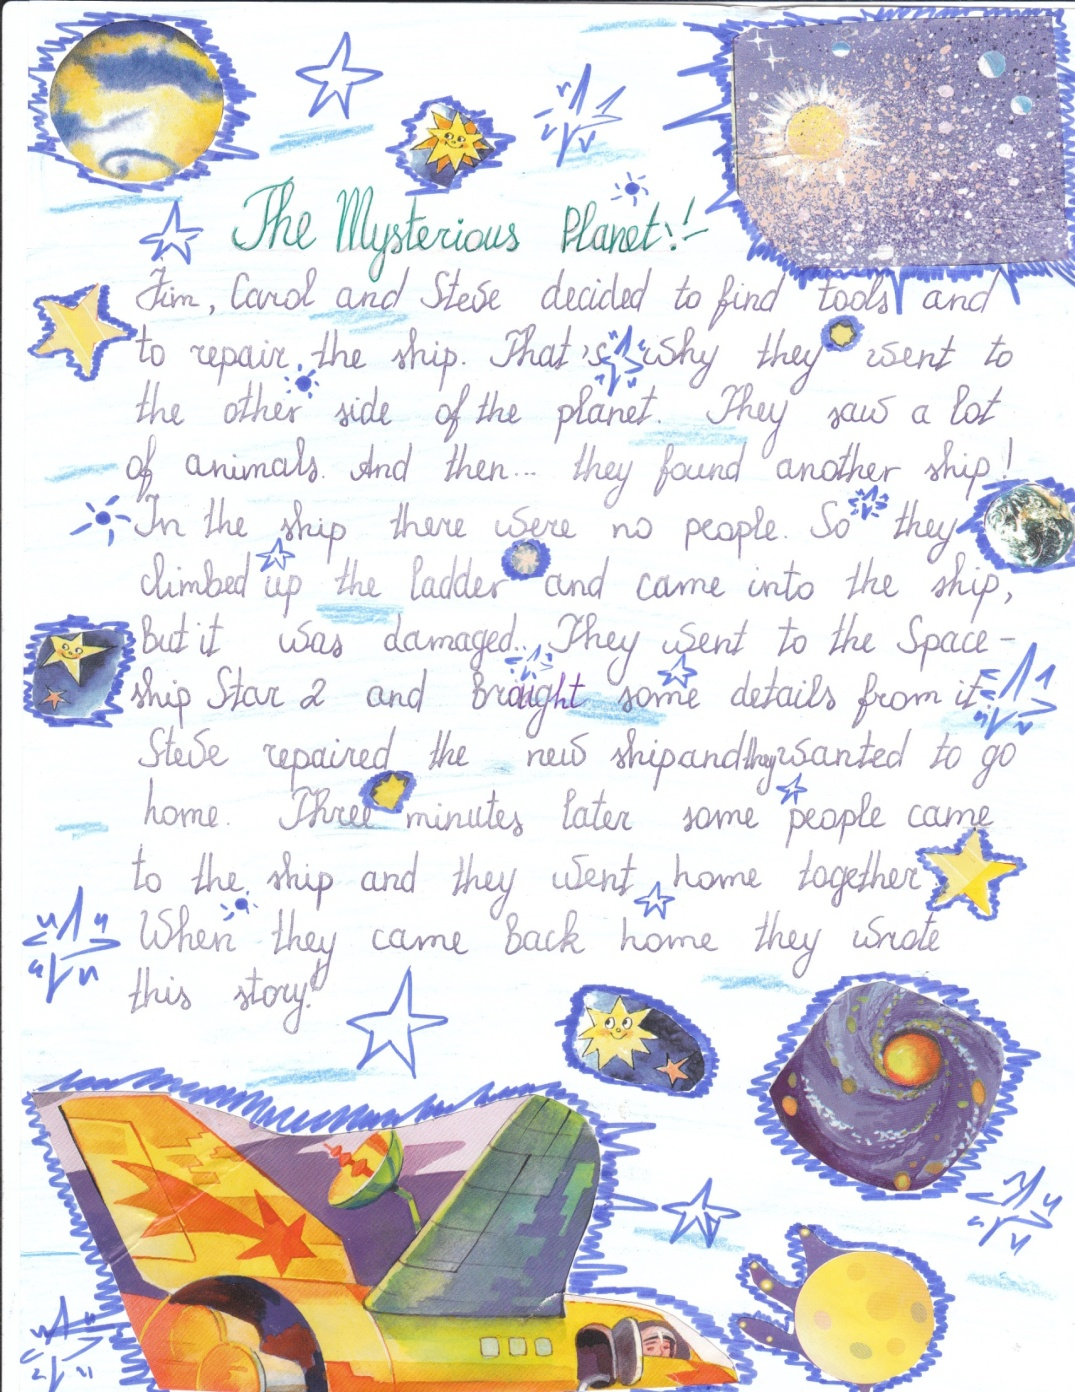 The Mysterious Planet!!
Jim, Carol and Steve decided to find tools and
to repair the ship. That's why they went to
the other side of the planet. They saw a lot
of animals. And then... they found another ship!
In the ship there were no people. So they
climbed up the ladder and came into the ship,
but it was damaged... They went to the Space-
ship Star 2 and brought some details from it.
Steve repaired the new ship and they wanted to go
home. Three minutes later some people came
to the ship and they went home together.
When they came back home they wrote
this story!